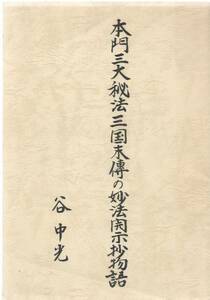 本門三大秘法三国末傳の妙法開示抄物語
谷中光